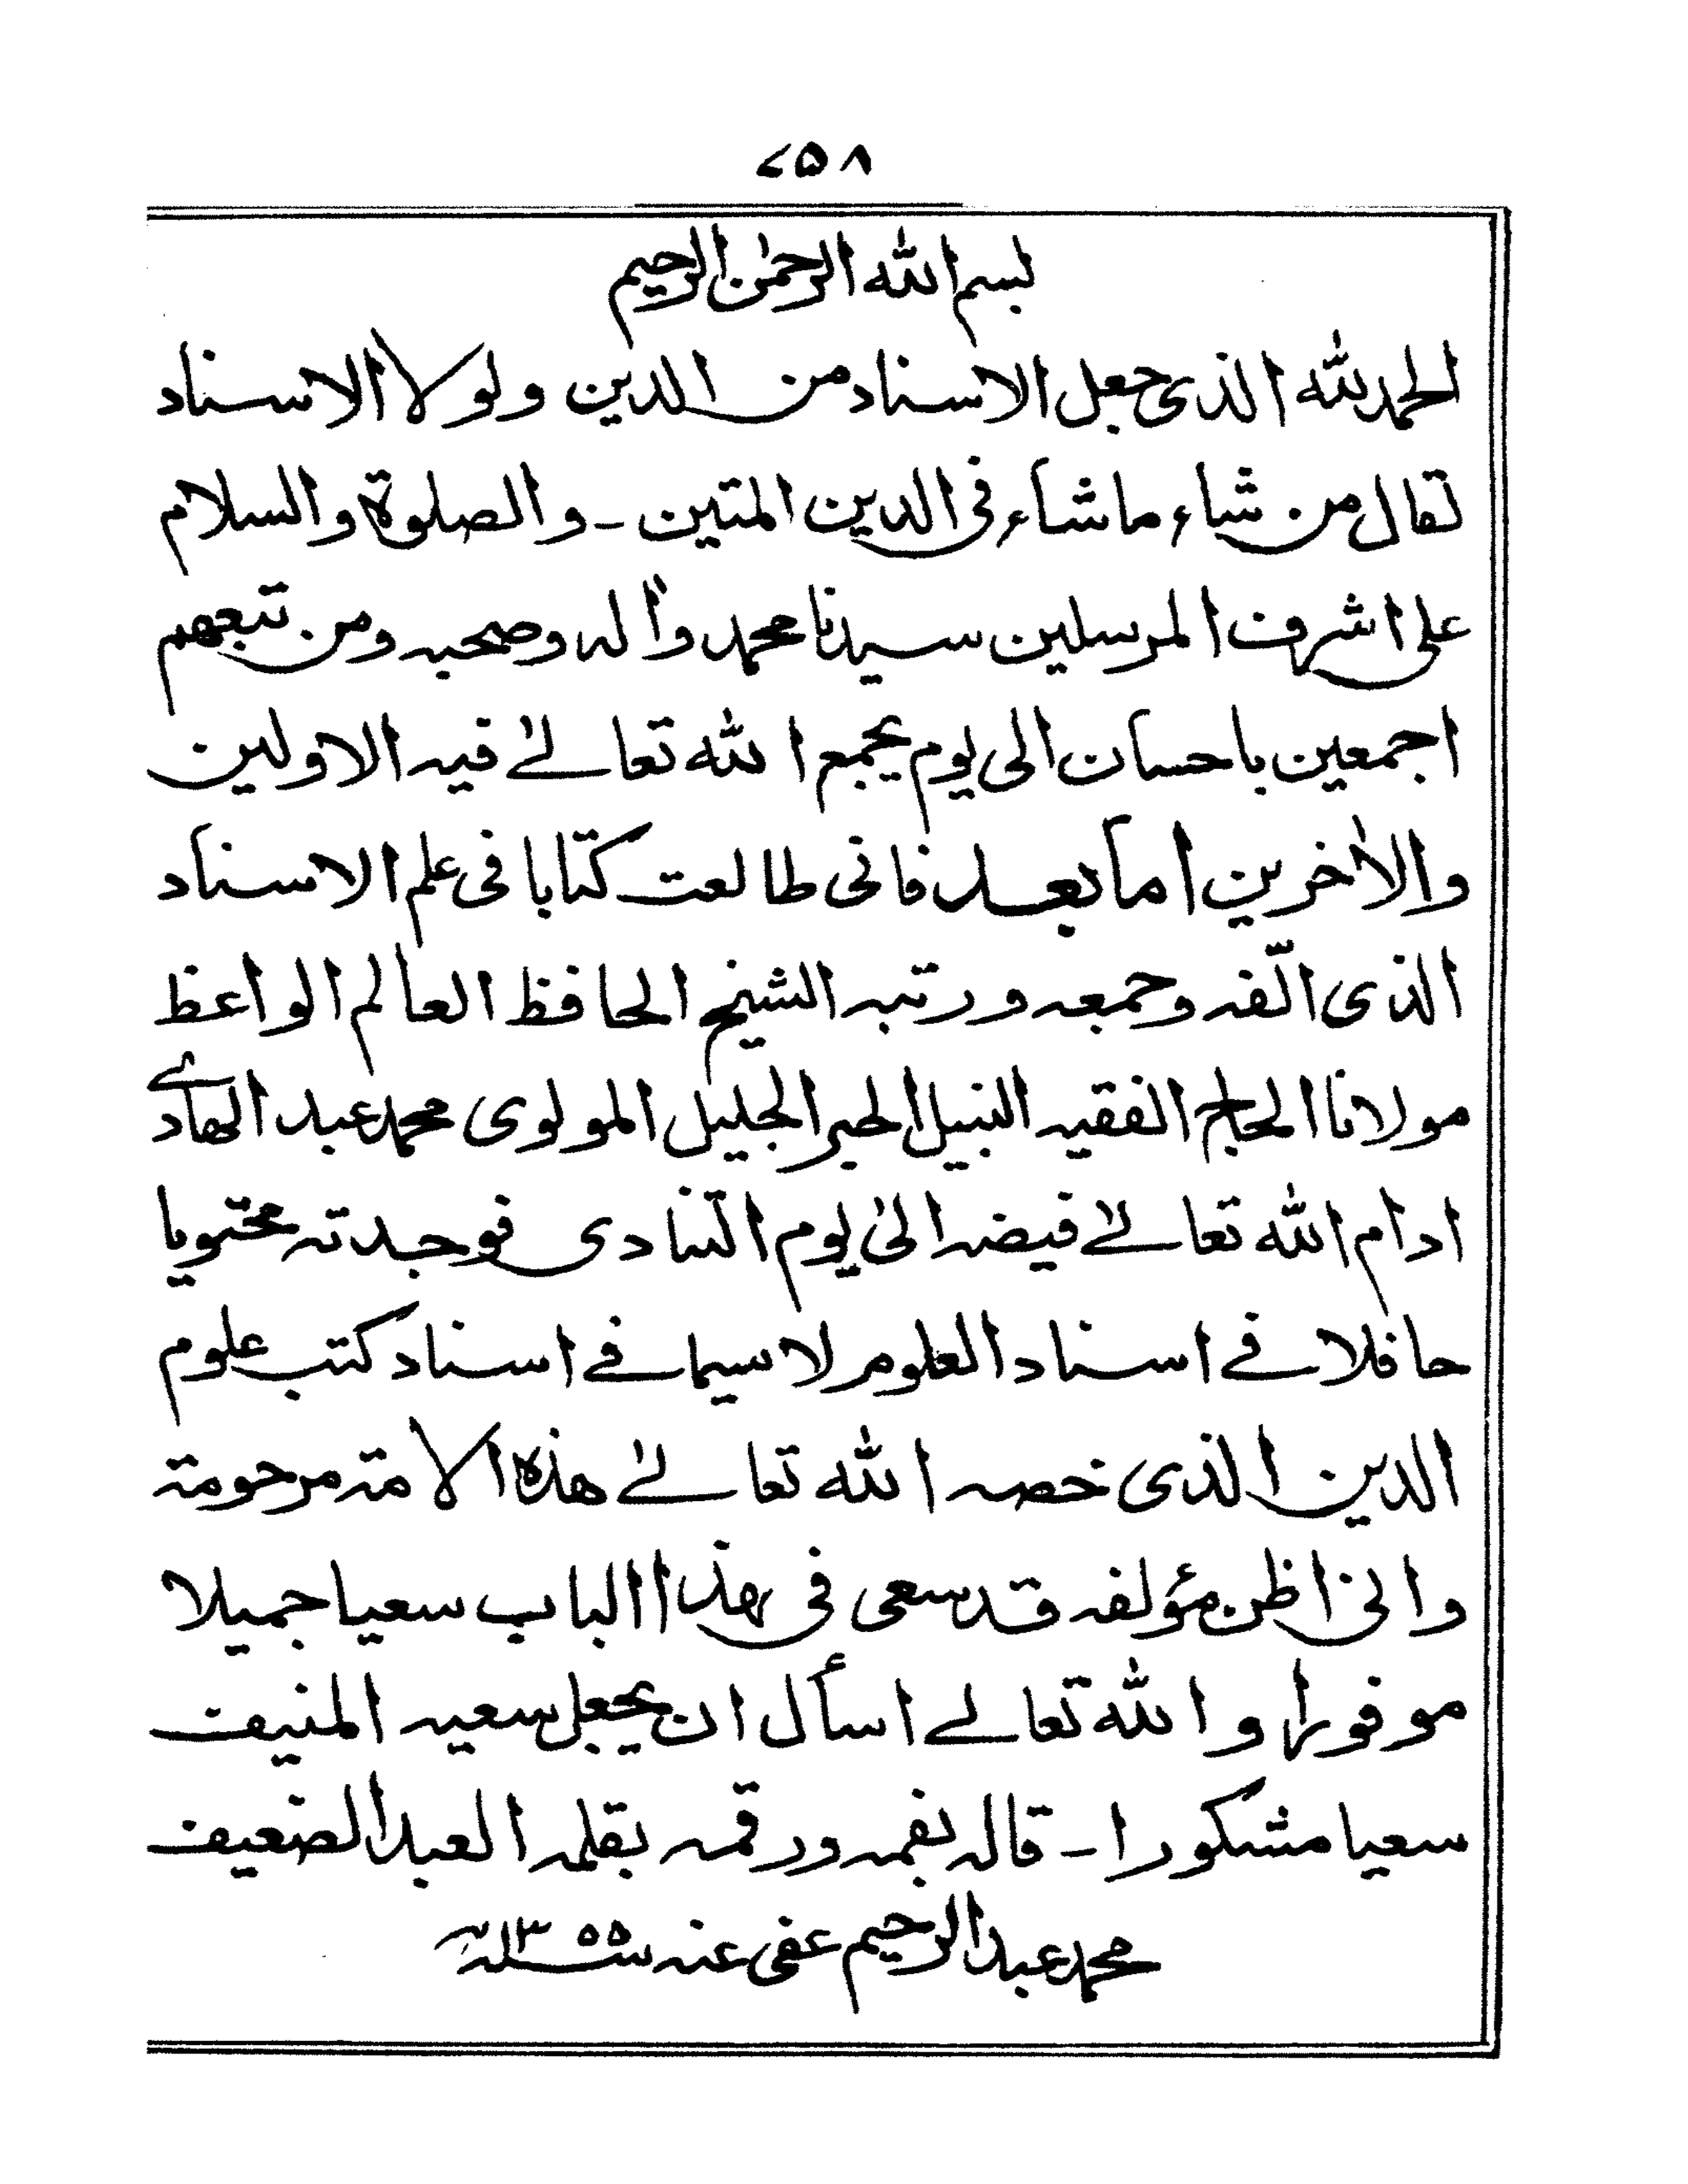 ۷۵۸
بسم الله الرحمٰن الرحيم
الحمد لله الذى جعل الاسناد من الدين ولولا الاسناد
لقال من شاء ما شاء فى الدين المتين ـ والصلوة والسلام
على اشرف المرسلين سيدنا محمد واٰله وصحبه ومن تبعهم
اجمعين باحسان الى يوم يجمع الله تعالےٰ فيه الاولين
والاٰخرين اما بعد فانى طالعت كتابا فى علم الاسناد
الذى الّفه وجمعه ورتبه الشيخ الحافظ العالم الواعظ
مولانا الحاج الفقيه النبيل الحبر الجليل المولوى محمد عبد الهادے
ادام الله تعالےٰ فيضه الىٰ يوم التنادى فوجدته محتويا
حافلا فے اسناد العلوم لا سيما فے اسناد كتب علوم
الدين الذى خصه الله تعالےٰ هذه الامة مرحومة
وانى اظن مؤلفه قد سعى فى هذا الباب سعيا جميلا
موفورا والله تعالے اسأل ان يجعل سعيه المنيف
سعيا مشكورا ـ قاله بفمه ورقمه بقلمه العبد الضعيف
محمد عبد الرحيم عفى عنه سنه ۱۳۵۵ھ